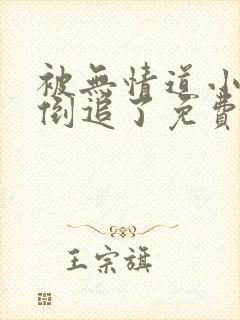 被無情道小
倒追了免費
王宗旗